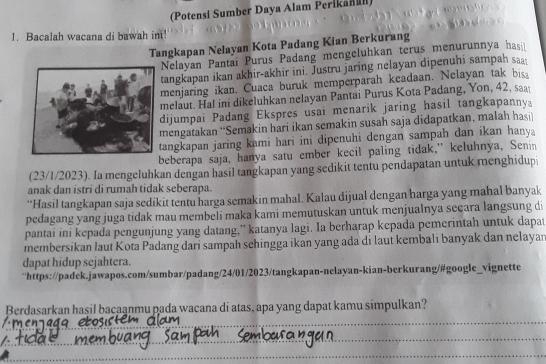 (Potensi Sumber Daya Alam Perikanan)
1. Bacalah wacana di bawah ini!
Tangkapan Nelayan Kota Padang Kian Berkurang
Nelayan Pantai Purus Padang mengeluhkan terus menurunnya hasil
tangkapan ikan akhir-akhir ini. Justru jaring nelayan dipenuhi sampah saat
menjaring ikan. Cuaca buruk memperparah keadaan. Nelayan tak bisa
melaut. Hal ini dikeluhkan nelayan Pantai Purus Kota Padang, Yon, 42, saat
dijumpai Padang Ekspres usai menarik jaring hasil tangkapannya
mengatakan "Semakin hari ikan semakin susah saja didapatkan, malah hasil
tangkapan jaring kami hari ini dipenuhi dengan sampah dan ikan hanya
beberapa saja, hanya satu ember kecil paling tidak," keluhnya, Senin
(23/1/2023). Ia mengeluhkan dengan hasil tangkapan yang sedikit tentu pendapatan untuk menghidupi
anak dan istri di rumah tidak seberapa.
"Hasil tangkapan saja sedikit tentu harga semakin mahal. Kalau dijual dengan harga yang mahal banyak
pedagang yang juga tidak mau membeli maka kami memutuskan untuk menjualnya secara langsung di
pantai ini kepada pengunjung yang datang," katanya lagi. Ia berharap kepada pemerintah untuk dapat
membersikan laut Kota Padang dari sampah sehingga ikan yang ada di laut kembali banyak dan nelayan
dapat hidup sejahtera.
"https://padek.jawapos.com/sumbar/padang/24/01/2023/tangkapan-nelayan-kian-berkurang/#google_vignette
Berdasarkan hasil bacaanmu pada wacana di atas, apa yang dapat kamu simpulkan?
1. menjaga ekosistem alam
1. tidak membuang sampah sembarangan